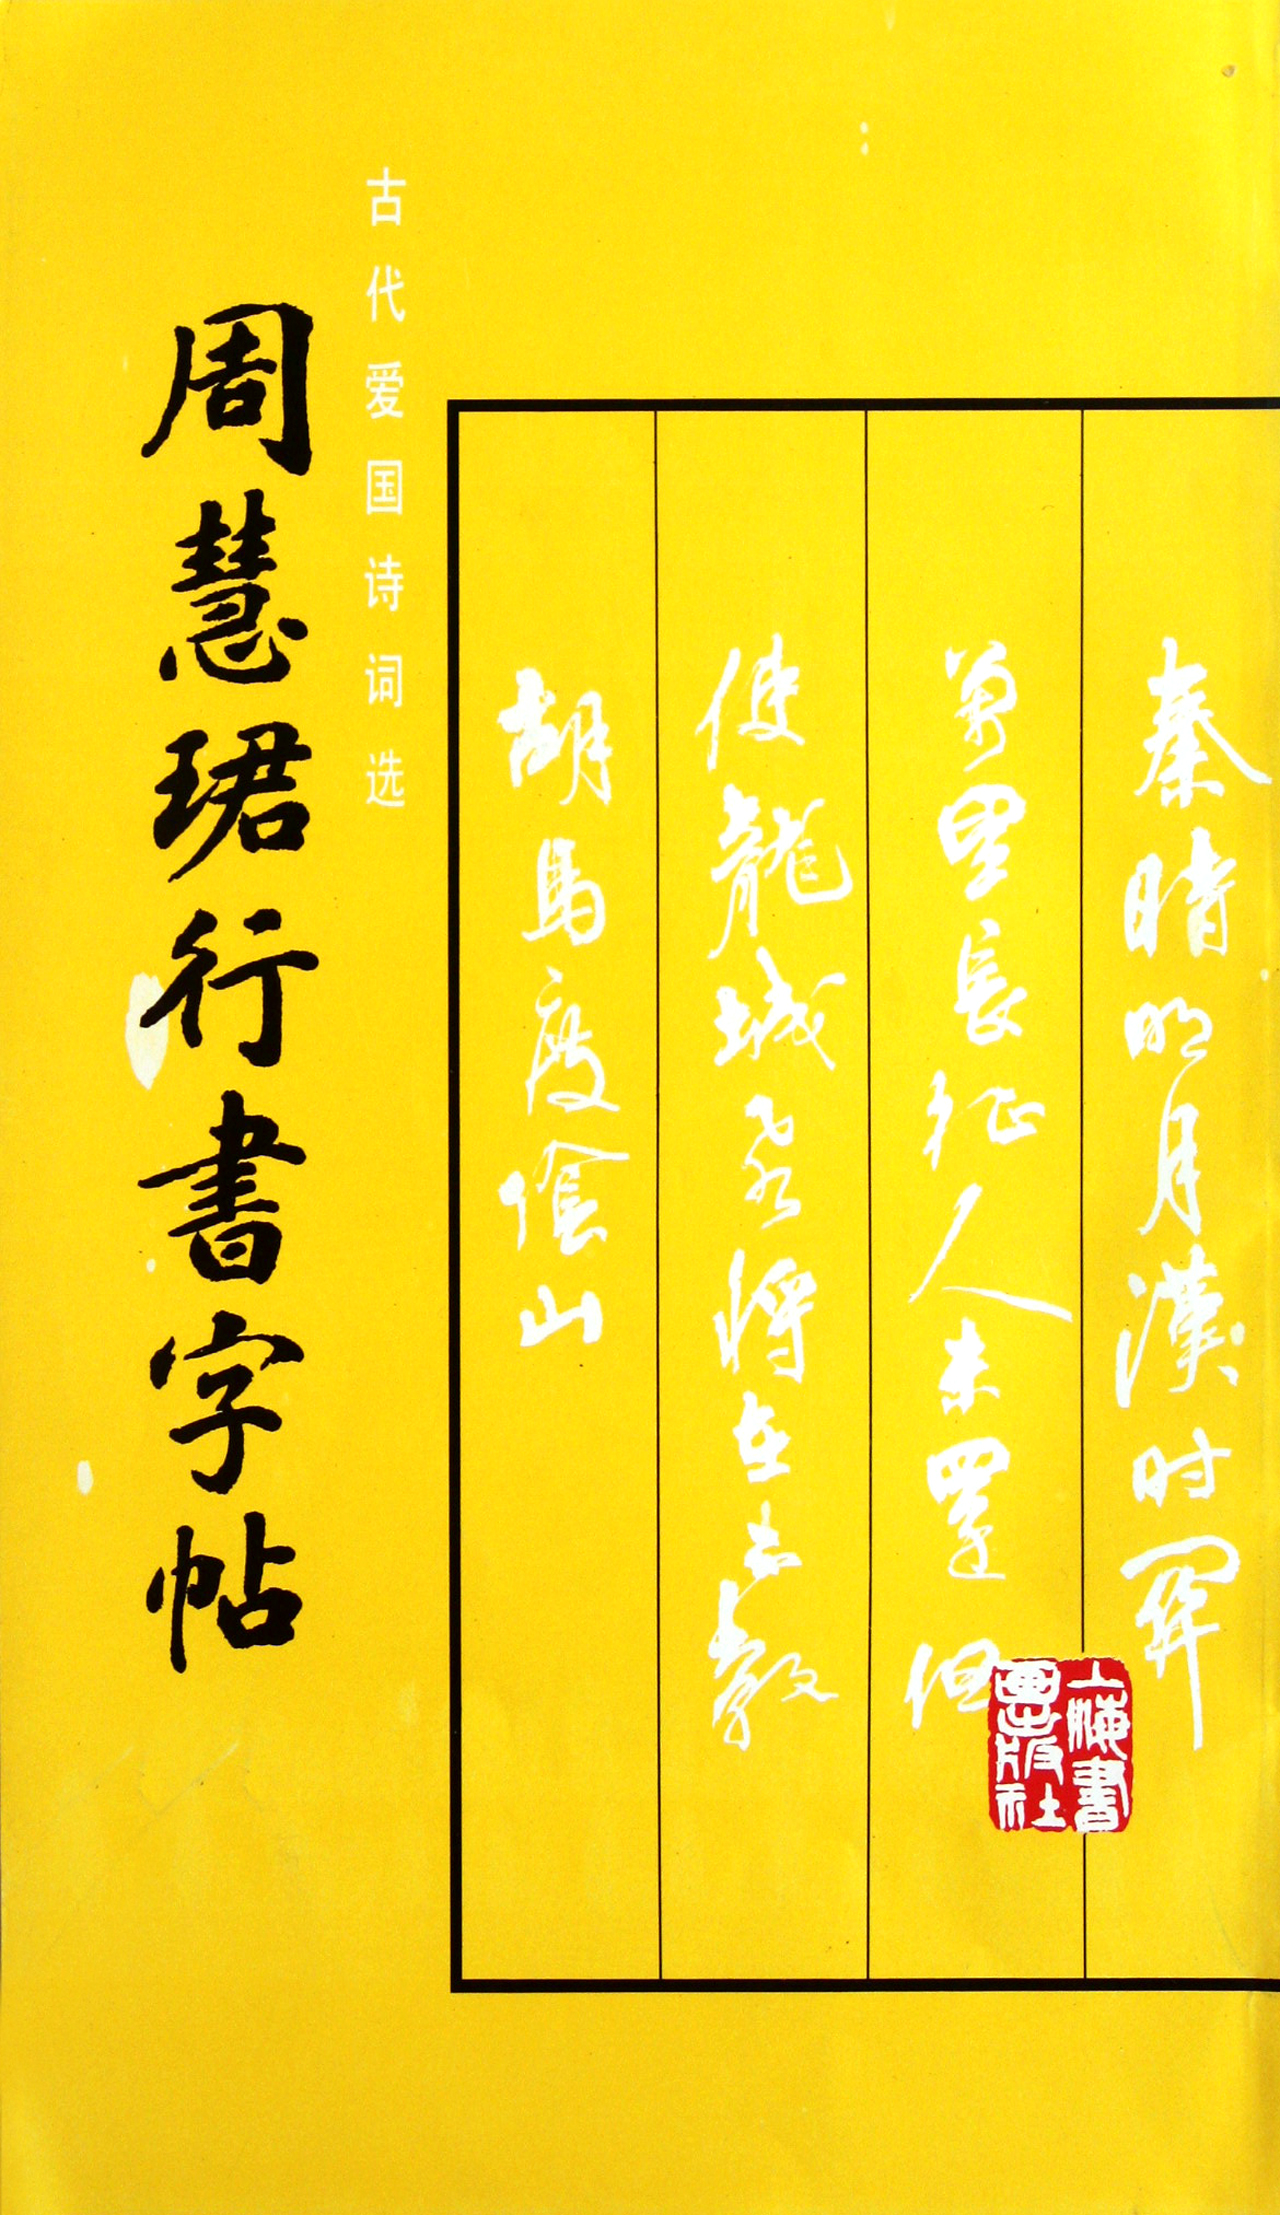 秦時明月漢时關
萬里長征人未還但
使龍城飛將在不教
胡馬度陰山
上海書畫出版社
古代爱国诗词选
周慧珺行書字帖